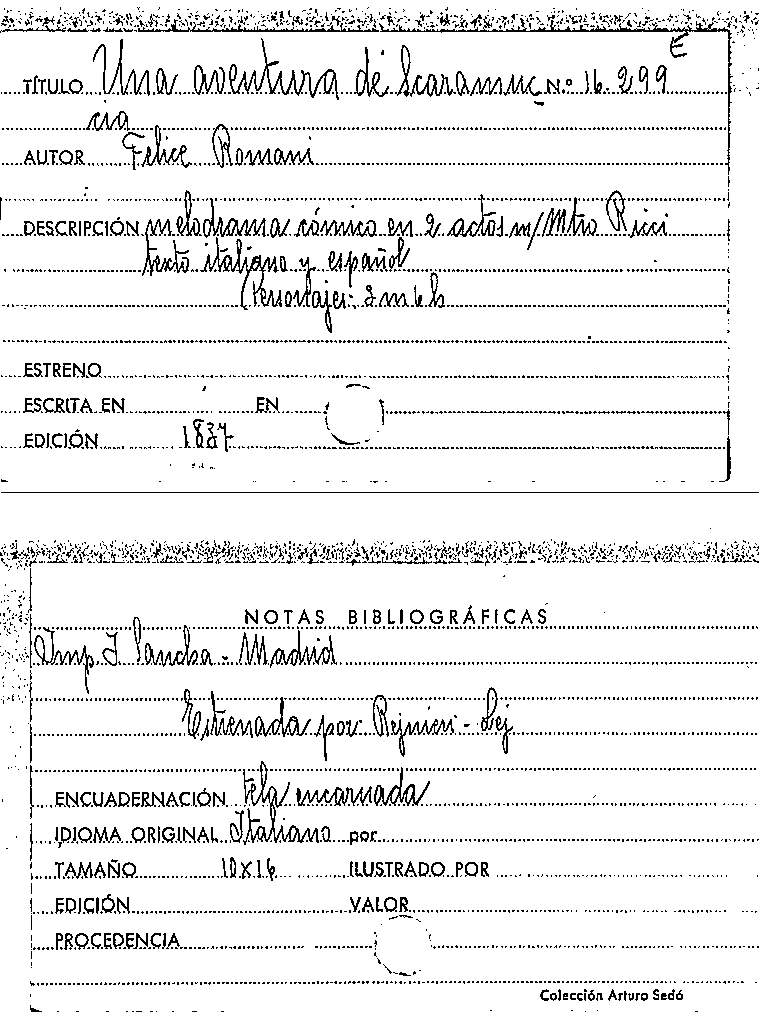 E
TÍTULO Una aventura de Scaramuc N.º 16.299
cia
AUTOR Felice Romani
DESCRIPCIÓN melodrama cómico en 2 actos m/ Mtro Ricci
texto italiano y español
(Personajes: 3 m 6 h
ESTRENO
ESCRITA EN EN
EDICIÓN 1837
NOTAS BIBLIOGRÁFICAS
Imp. I. Sancha - Madrid
Estrenada por: Rejnieri - Lej
ENCUADERNACIÓN tela encarnada
IDIOMA ORIGINAL Italiano por
TAMAÑO 10x16 ILUSTRADO POR
EDICIÓN VALOR
PROCEDENCIA
Colección Arturo Sedó